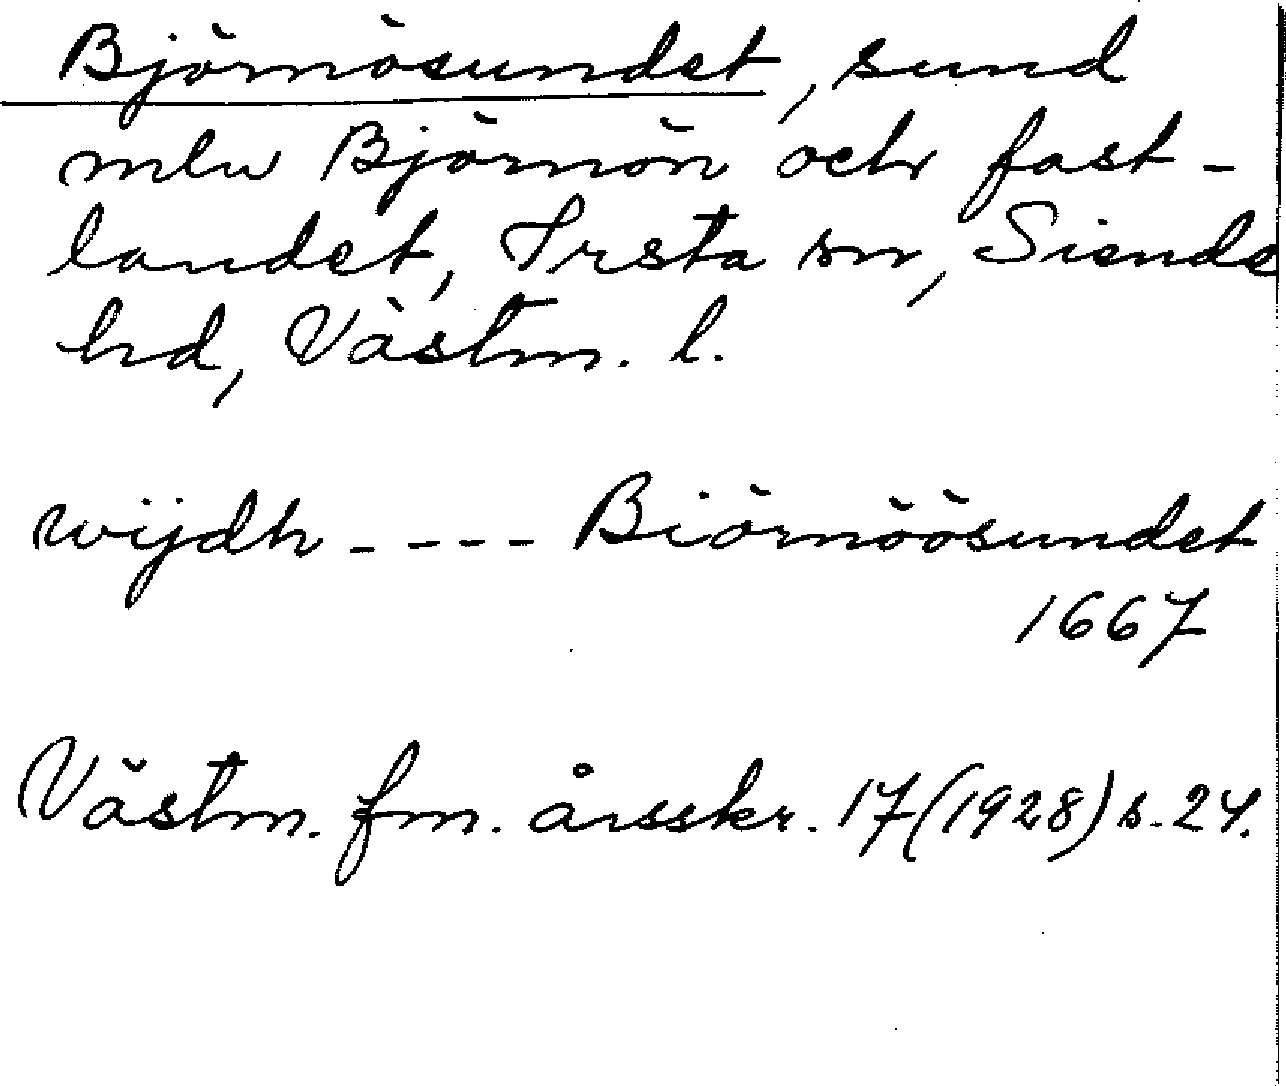 Björnösundet, sund
mlw Björnön och fast-
landet, Irsta sn, Siende
hd, Västm. l.
wijdh ---- Biörnöösundet
1667
Västm. fm. årsskr. 17 (1928) s. 24.